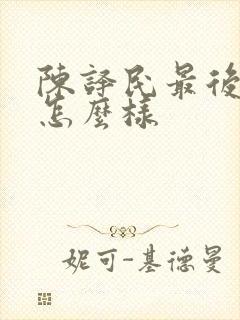 陳譯民最後
怎麼樣
妮可-基德曼